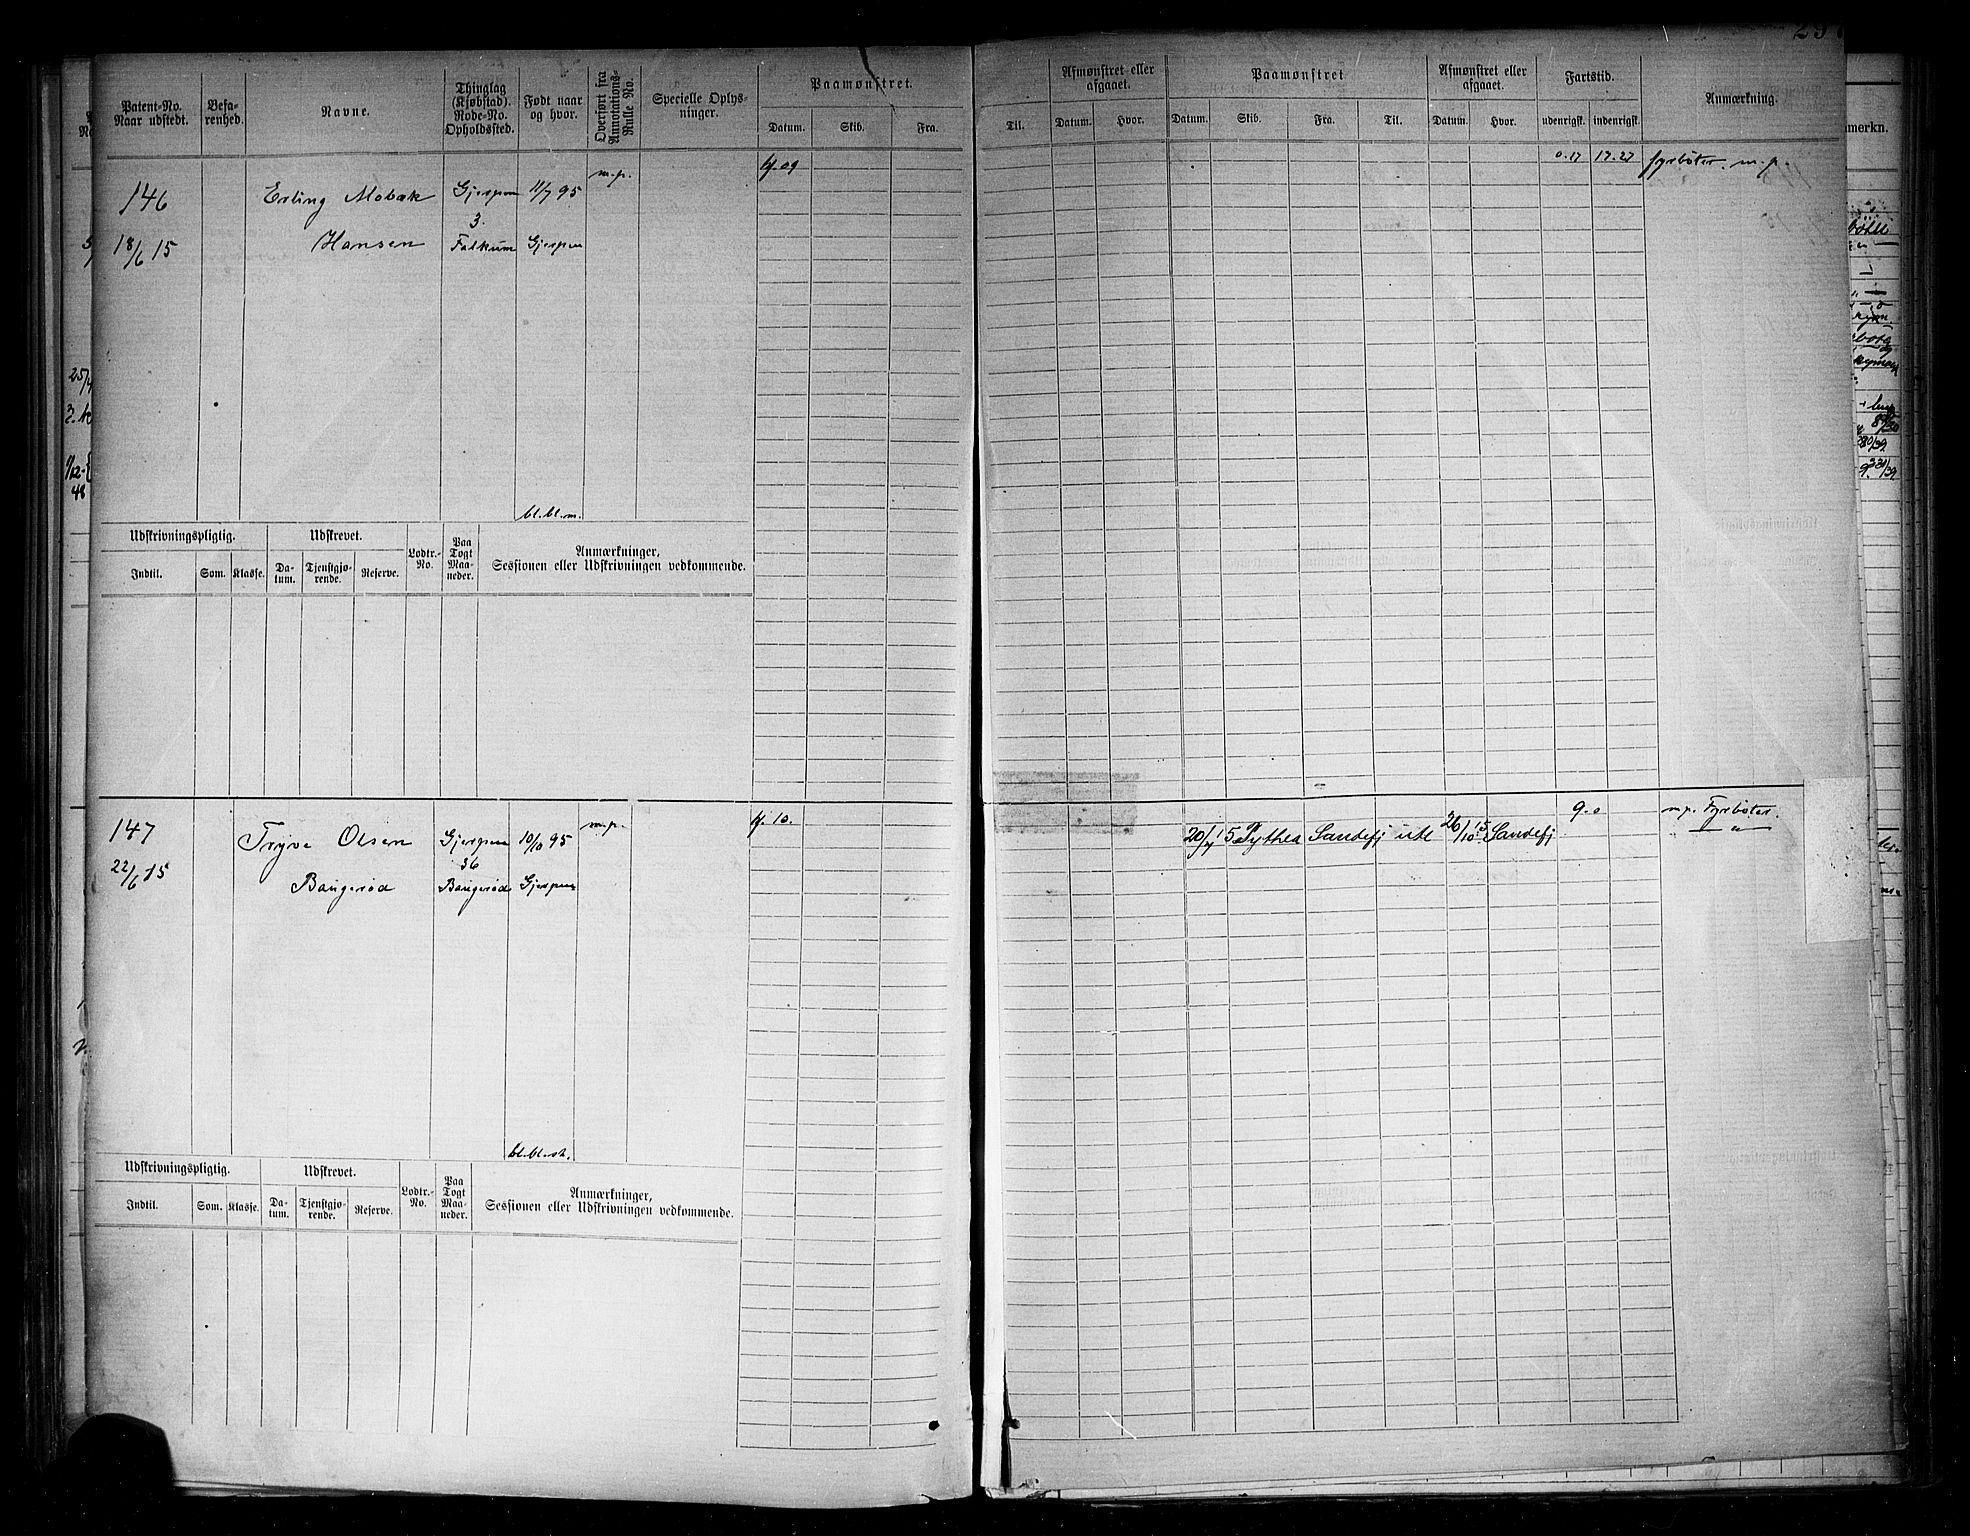 Patent-No. Naar udstedt.
Befarenhed.
Navne.
Thinglag (Kjøbstad). Rode-No. Opholdssted.
Født naar og hvor.
Overført fra Annotations-Rulle No.
Specielle Oplysninger.
Paamønstret.
Datum. Skib. Fra.
Til.
Afmønstret eller afgaaet.
Datum. Hvor.
Paamønstret
Datum. Skib. Fra. Til.
Afmønstret eller afgaaet.
Datum. Hvor.
Fartstid.
udenrigsk. indenrigsk.
Anmærkning.
146 Erling Mobæk Gjerpen 11/7 95 m.p. 09 0.17 17.27 fyrbøter m.p.
3.
18/6 15 Hansen Falkum Gjerpen
bl.bl.m.
Udskrivningspligtig. Udskrevet. Lodtr.-No. Paa Togt Maaneder. Anmærkninger, Sessionen eller Udskrivningen vedkommende.
Indtil. Som. Klasse. Datum. Tjenstgjørende. Reserve.
147 Trÿve Olsen Gjerpen 10/10 95 m.p. 10. 15 Pythea Sandefj utl 26/10 15 Sandefj 9.0 m.p. Fyrbøter.
36
22/6 15 Baugerød Baugerød Gjerpen
bl.bl.st.
Udskrivningspligtig. Udskrevet. Lodtr.-No. Paa Togt Maaneder. Anmærkninger, Sessionen eller Udskrivningen vedkommende.
Indtil. Som. Klasse. Datum. Tjenstgjørende. Reserve.